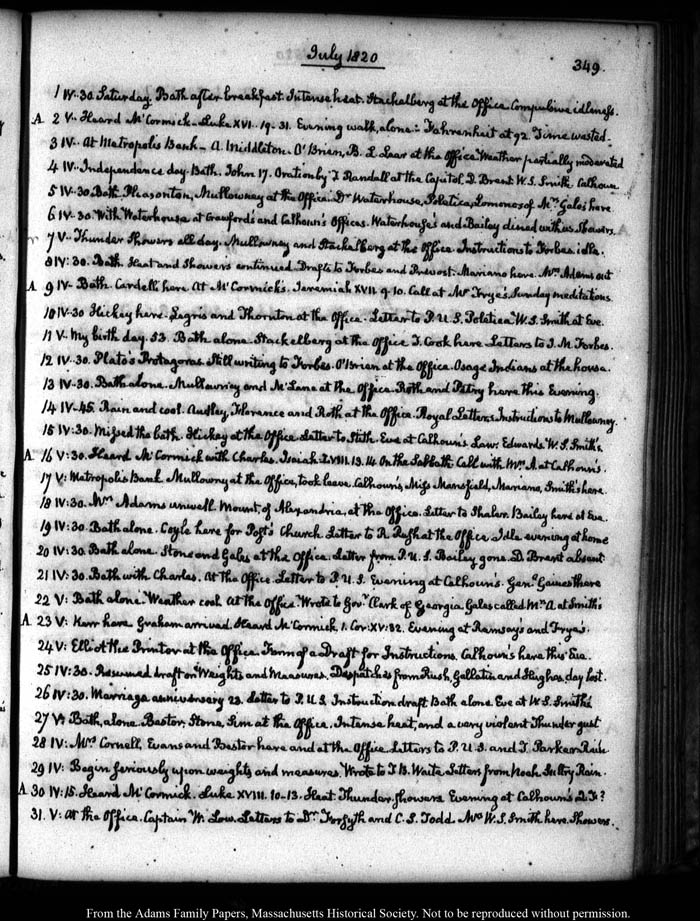 July 1820
349.
1 IV-30. Saturday. Bath after breakfast. Intense heat. Stackelberg at the Office. Compulsive idleness.
A. 2 V- Heard McCormick. Luke XVI. 19-31. Evening walk, alone: Fahrenheit at 92. Time wasted.
3 IV.. At Metropolis Bank- A. Middleton. O'Brien, B. L. Lear at the Office Weather partially moderated
4 IV.. Independence day. Bath. John 17. Oration by J. Randall at the Capitol. D. Brent. W. S. Smith. Calhoun
5 IV-30. Bath. Pleasonton, Mullowney at the Office. Dr Waterhouse, Poletica, Lomonosof Mrs Gales here
6 IV-30. With Waterhouse at Crawford's and Calhoun's Offices. Waterhouse and Bailey dined with us. Showers.
7 V- Thunder Showers all day. Mullowney and Stackelberg at the Office. Instructions to Forbes. idle.
8 IV: 30. Bath. Heat and Showers continued. Drafts to Forbes and Prevost. Mariano here. Mrs Adams out
A 9 IV- Bath. Cardelli here. At McCormick's. Jeremiah XVII. 9. 10. Call at Mr Frye's. Sunday meditations.
10 IV-30 Hickey here. Lagris and Thornton at the Office. Letter to P. U. S. Poletica W. S. Smith at Eve.
11 V. My birth day. 53. Bath alone. Stackelberg at the Office J. Cook here. Letters to J. M. Forbes.
12 IV-30. Plato's Protagoras. Still writing to Forbes. O'Brien at the Office. Osage Indians at the house.
13 IV-30. Bath alone. Mullowney and McLane at the Office. Roth and Petry here this Evening.
14 IV-45. Rain and cool. Audley, Florence and Roth at the Office. Royal Letters. Instructions to Mullowney.
15 IV:30. Missed the bath. Hickey at the Office. Letter to Stith. Eve at Calhoun's Law. Edwards. W. S. Smith's.
A 16 V:30. Heard McCormick with Charles. Isaiah LVIII. 13. 14 On the Sabbath. Call with Mrs A at Calhoun's.
17 V: Metropolis Bank. Mullowny at the Office, took leave. Calhoun's, Miss Mansfield, Mariano, Smith's here.
18 IV:30. Mrs Adams unwell. Mount, of Alexandria, at the Office. Letter to Shaler. Bailey here at Eve.
19 IV:30. Bath alone. Coyle here for Post's Church. Letter to R. Rush at the Office. Idle evening at home
20 IV:30. Bath alone. Stone and Gales at the Office. Letter from P. U. S. Bailey gone. D. Brent absent
21 IV:30. Bath with Charles. At the Office. Letter to P. U S. Evening at Calhoun's. Genl Gaines there
22 V: Bath alone. Weather cool. At the Office Wrote to Govr Clark of Georgia. Gales called. Mrs A. at Smith's
A 23 V: Kerr here. Graham arrived. Heard McCormick 1. Cor: XV: 32. Evening at Ramsay's and Frye's.
24 V: Elliot the Printer at the Office. Form of a Draft for Instructions. Calhoun's here this Eve.
25 IV:30. Resumed draft on Weights and Measures. Despatches from Rush, Gallatin and Hughes, day lost.
26 IV:30. Marriage anniversary 23. Letter to P. U S. Instruction draft Bath alone. Eve at W. S. Smith's
27 V: Bath, alone. Bestor, Stone, Sim at the Office. Intense heat, and a very violent Thunder gust
28 IV: Mrs Cornell, Evans and Bestor here and at the Office. Letters to P. U S. and J. Parker. Rain.
29 IV: Begin seriously upon weights and measures Wrote to T. B. Waite Letters from Noah. Sultry Rain.
A 30 IV:15. Heard McCormick. Luke XVIII. 10-13. Heat. Thunder showers Evening at Calhoun's
31. V: At the Office. Captain W. Low. Letters to Dr Forsyth and C. S. Todd. Mrs W. S. Smith here. Showers.
From the Adams Family Papers, Massachusetts Historical Society. Not to be reproduced without permission.